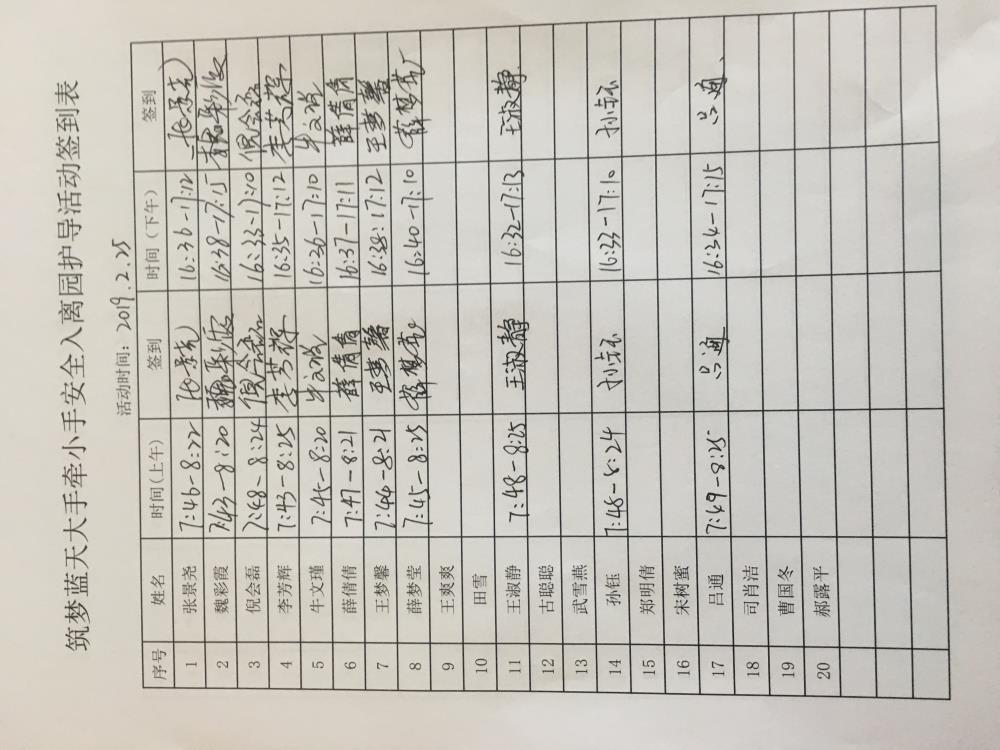 筑梦蓝天大手牵小手安全入离园护导活动签到表
活动时间：2019.2.25
序号 姓名 时间(上午) 签到 时间（下午） 签到
1 张景尧 7:46-8:22 张景尧 16:36-17:12 张景尧
2 魏彩霞 7:43-8:20 魏彩霞 16:38-17:15 魏彩霞
3 倪会磊 7:48-8:24 倪会磊 16:33-17:10 倪会磊
4 李芳辉 7:43-8:25 李芳辉 16:35-17:12 李芳辉
5 牛文瑾 7:45-8:20 牛文瑾 16:36-17:10 牛文瑾
6 薛倩倩 7:47-8:21 薛倩倩 16:37-17:11 薛倩倩
7 王梦馨 7:44-8:21 王梦馨 16:38-17:12 王梦馨
8 薛梦莹 7:45-8:25 薛梦莹 16:40-17:10 薛梦莹
9 王爽爽
10 田雪
11 王淑静 7:48-8:25 王淑静 16:32-17:13 王淑静
12 古聪聪
13 武雪燕
14 孙钰 7:48-8:24 孙钰 16:33-17:10 孙钰
15 郑明倩
16 宋树蜜
17 吕通 7:49-8:25 吕通 16:34-17:15 吕通
18 司肖洁
19 曹国冬
20 郝露平